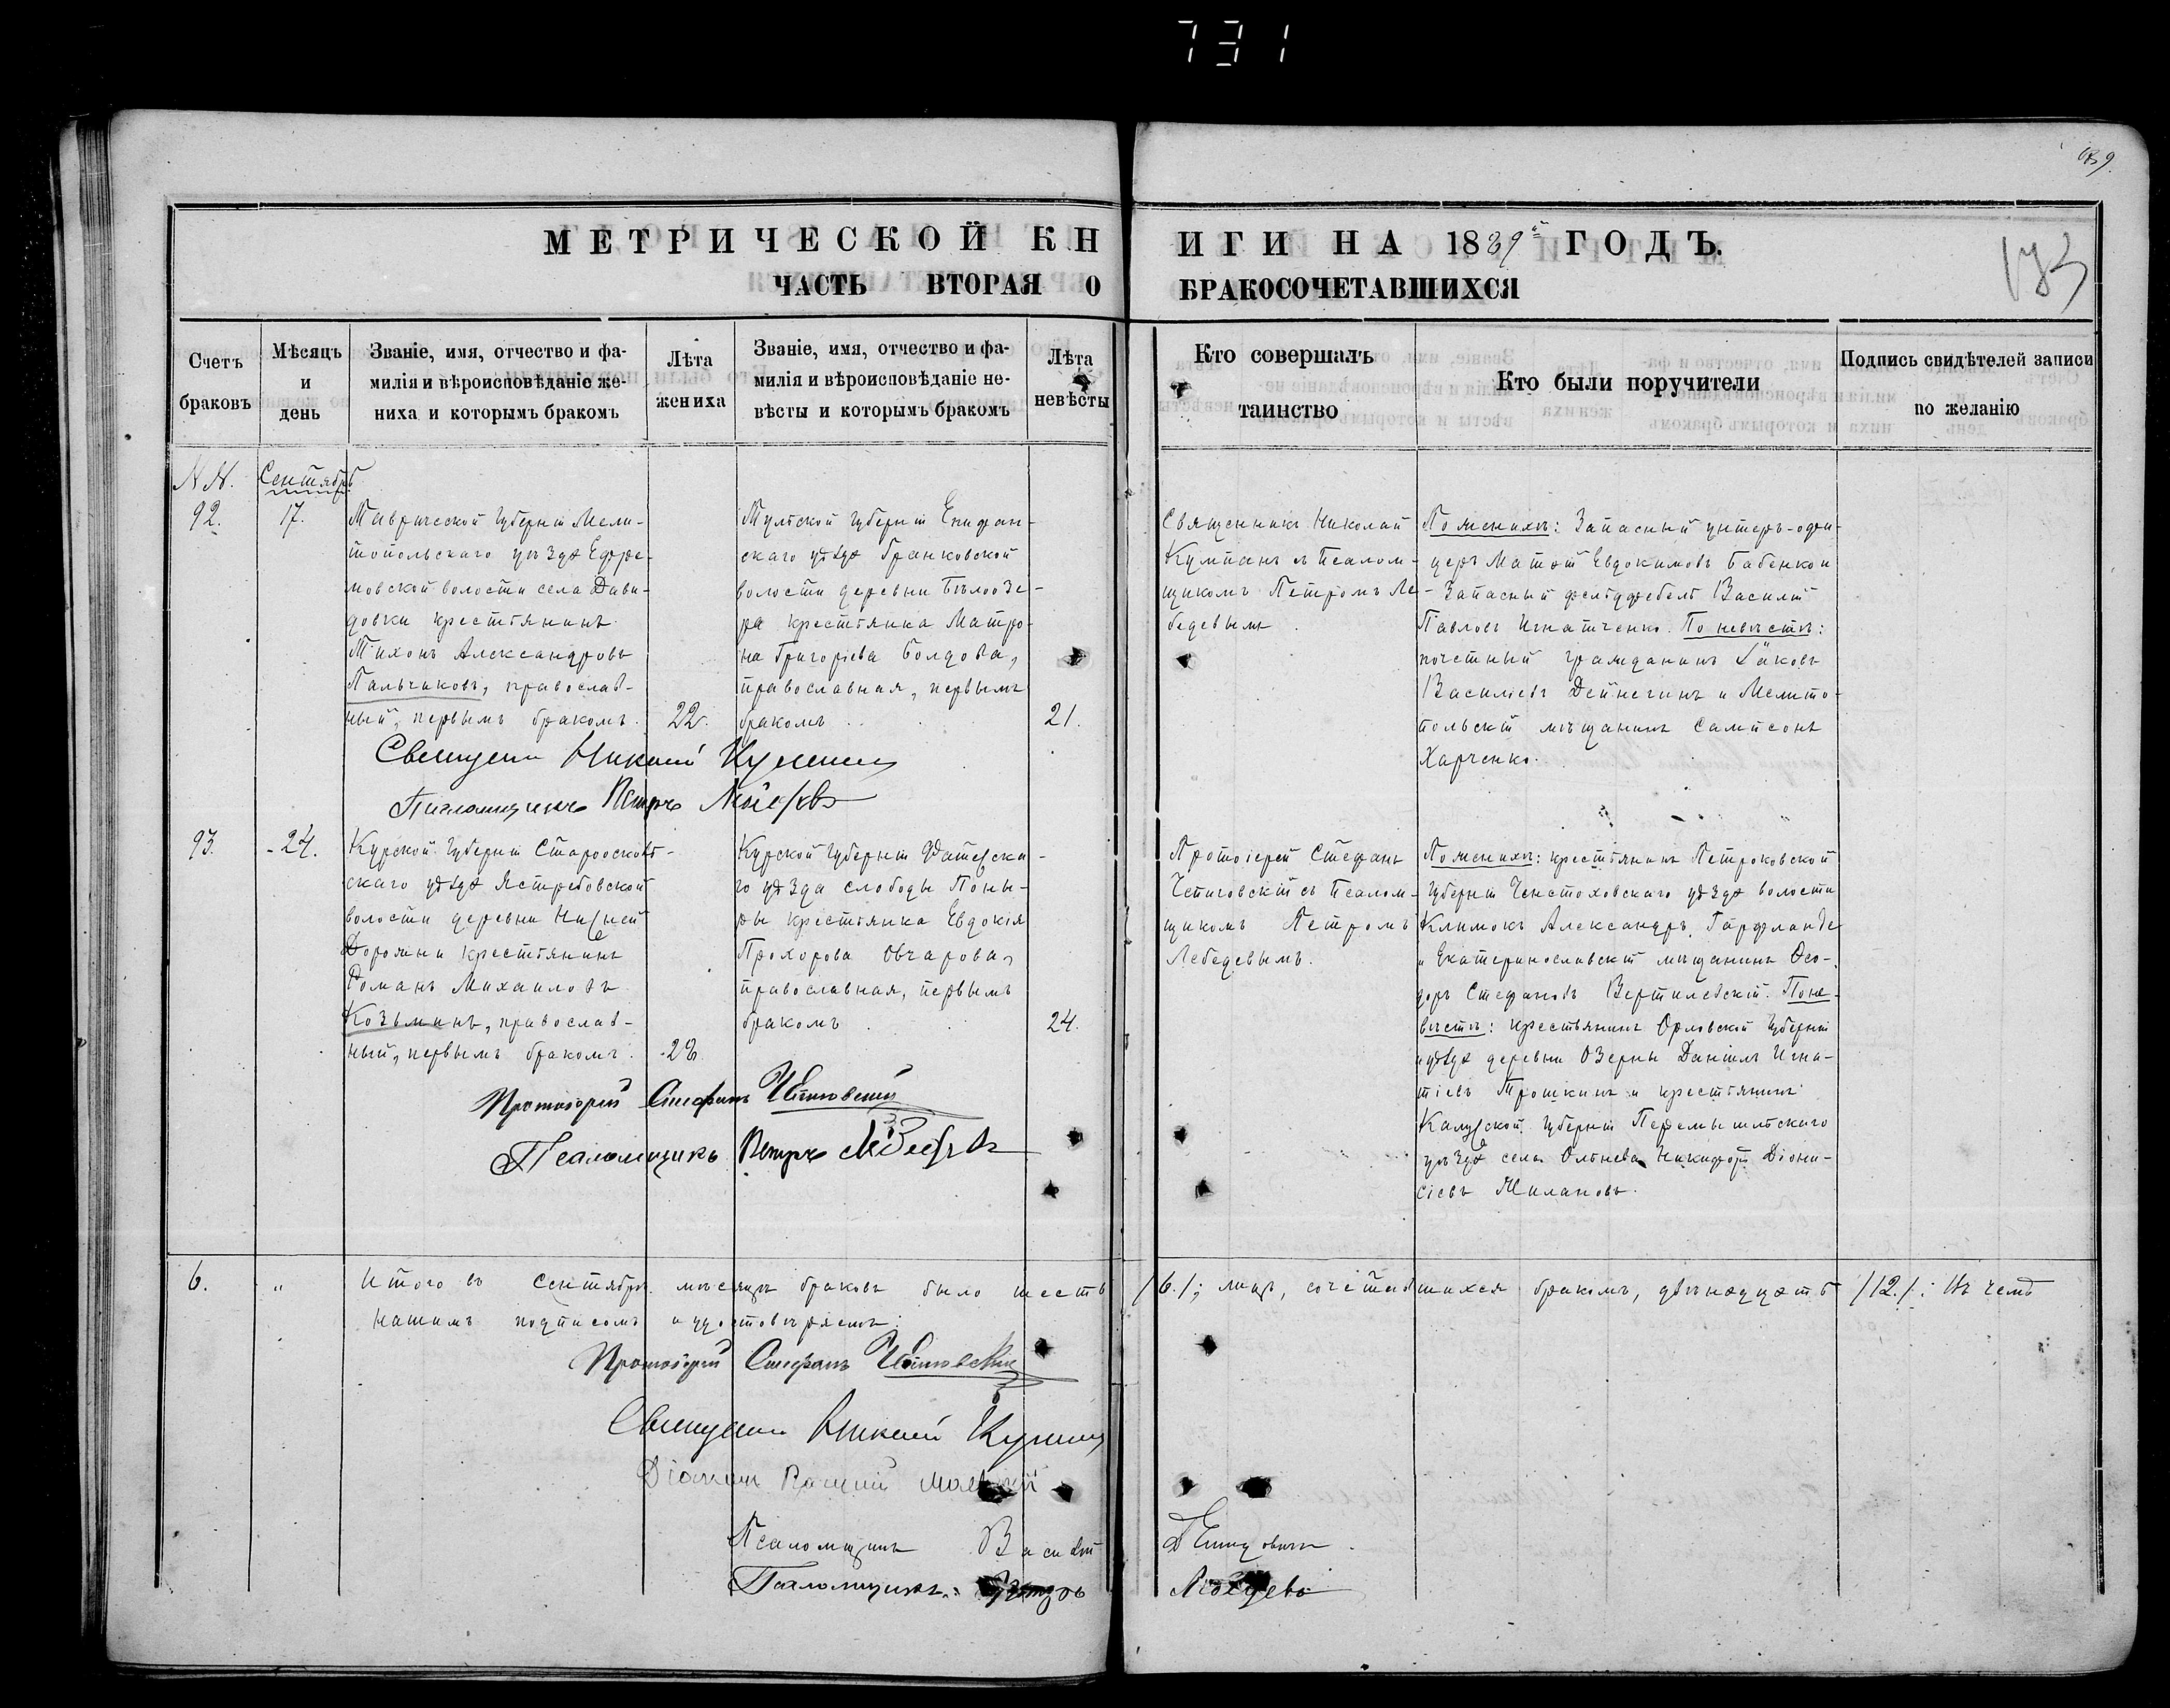 731
МЕТРИЧЕСКОЙ КНИГИ НА 1889й ГОДЪ.
ЧАСТЬ ВТОРАЯ О БРАКОСОЧЕТАВШИХСЯ
173
Счетъ браковъ
Мѣсяцъ и день
Званіе, имя, отчество и фа-
милія и вѣроисповѣданіе же-
ниха и которымъ бракомъ
Лѣта жениха
Званіе, имя, отчество и фа-
милія и вѣроисповѣданіе не-
вѣсты и которымъ бракомъ
Лѣта невѣсты
Кто совершалъ
таинство
Кто были поручители
Подпись свидѣтелей записи
по желанію
N.N.
Сентябрь
92.
17.
Таврической Губерніи Мели-
топольскаго уѣзда Ефре-
мовской волости села Дави-
довки крестьянинъ
Тихонъ Александровъ
Пальчиковъ, православ-
ный, первымъ бракомъ.
22.
Тульской Губерніи Епифан-
скаго уѣзда Гранковской
волости деревни Бѣлоозе-
ра крестьянка Матро-
на Григоріева Болдова,
православная, первымъ
бракомъ
21.
Священникъ Николай
съ Псалом-
щикомъ Петромъ Ле-
бедевымъ.
По женихѣ: Запасный унтеръ-офи-
церъ Матѳій Евдокимовъ Бабенко и
Запасный фельдфебель Василій
Павловъ Игнатченко. По невѣстѣ:
почетный гражданинъ Іаковъ
Василіевъ Дейнегинъ и Мелито-
польскій мѣщанинъ Сампсонъ
Харченко.
Священникъ Николай
Псаломщикъ Петръ Лебедевъ
93.
24.
Курской Губерніи Староосколь-
скаго уѣзда Ястребовской
волости деревни Нижней
Дорожни крестьянинъ
Романъ Михаиловъ
Козьминъ, православ-
ный, первымъ бракомъ.
Курской Губерніи Фатежска-
го уѣзда слободы Поны-
ры крестьянка Евдокія
Прохорова Овчарова,
православная, первымъ
бракомъ
24.
Протоіерей Стефанъ
съ Псалом-
щикомъ Петромъ
Лебедевымъ.
По женихѣ: крестьянинъ Петроковской
Губерніи Ченстоховскаго уѣзда волости
Климокъ Александръ
и Екатеринославскій мѣщанинъ Ѳео-
доръ Стефановъ Вертилевскій. По не-
вѣстѣ: крестьянинъ Орловской Губерніи
и уѣзда деревни Озерны Даніилъ Игна-
тіевъ Трошкинъ и крестьянинъ
Калужской Губерніи Перемышльскаго
уѣзда села Никифоръ Діони-
сіевъ Милановъ.
Протоіерей Стефанъ
Псаломщикъ Петръ Лебедевъ
6.
"
Итого въ Сентябрѣ мѣсяцѣ браковъ было шесть /6./; лицъ, сочетавшихся бракомъ, двѣнадцать /12./: Въ чемъ
нашимъ подписомъ и удостовѣряемъ:
Протоіерей Стефанъ
Священникъ Николай
Діаконъ
Псаломщикъ Василій
Псаломщикъ: Лебедевъ